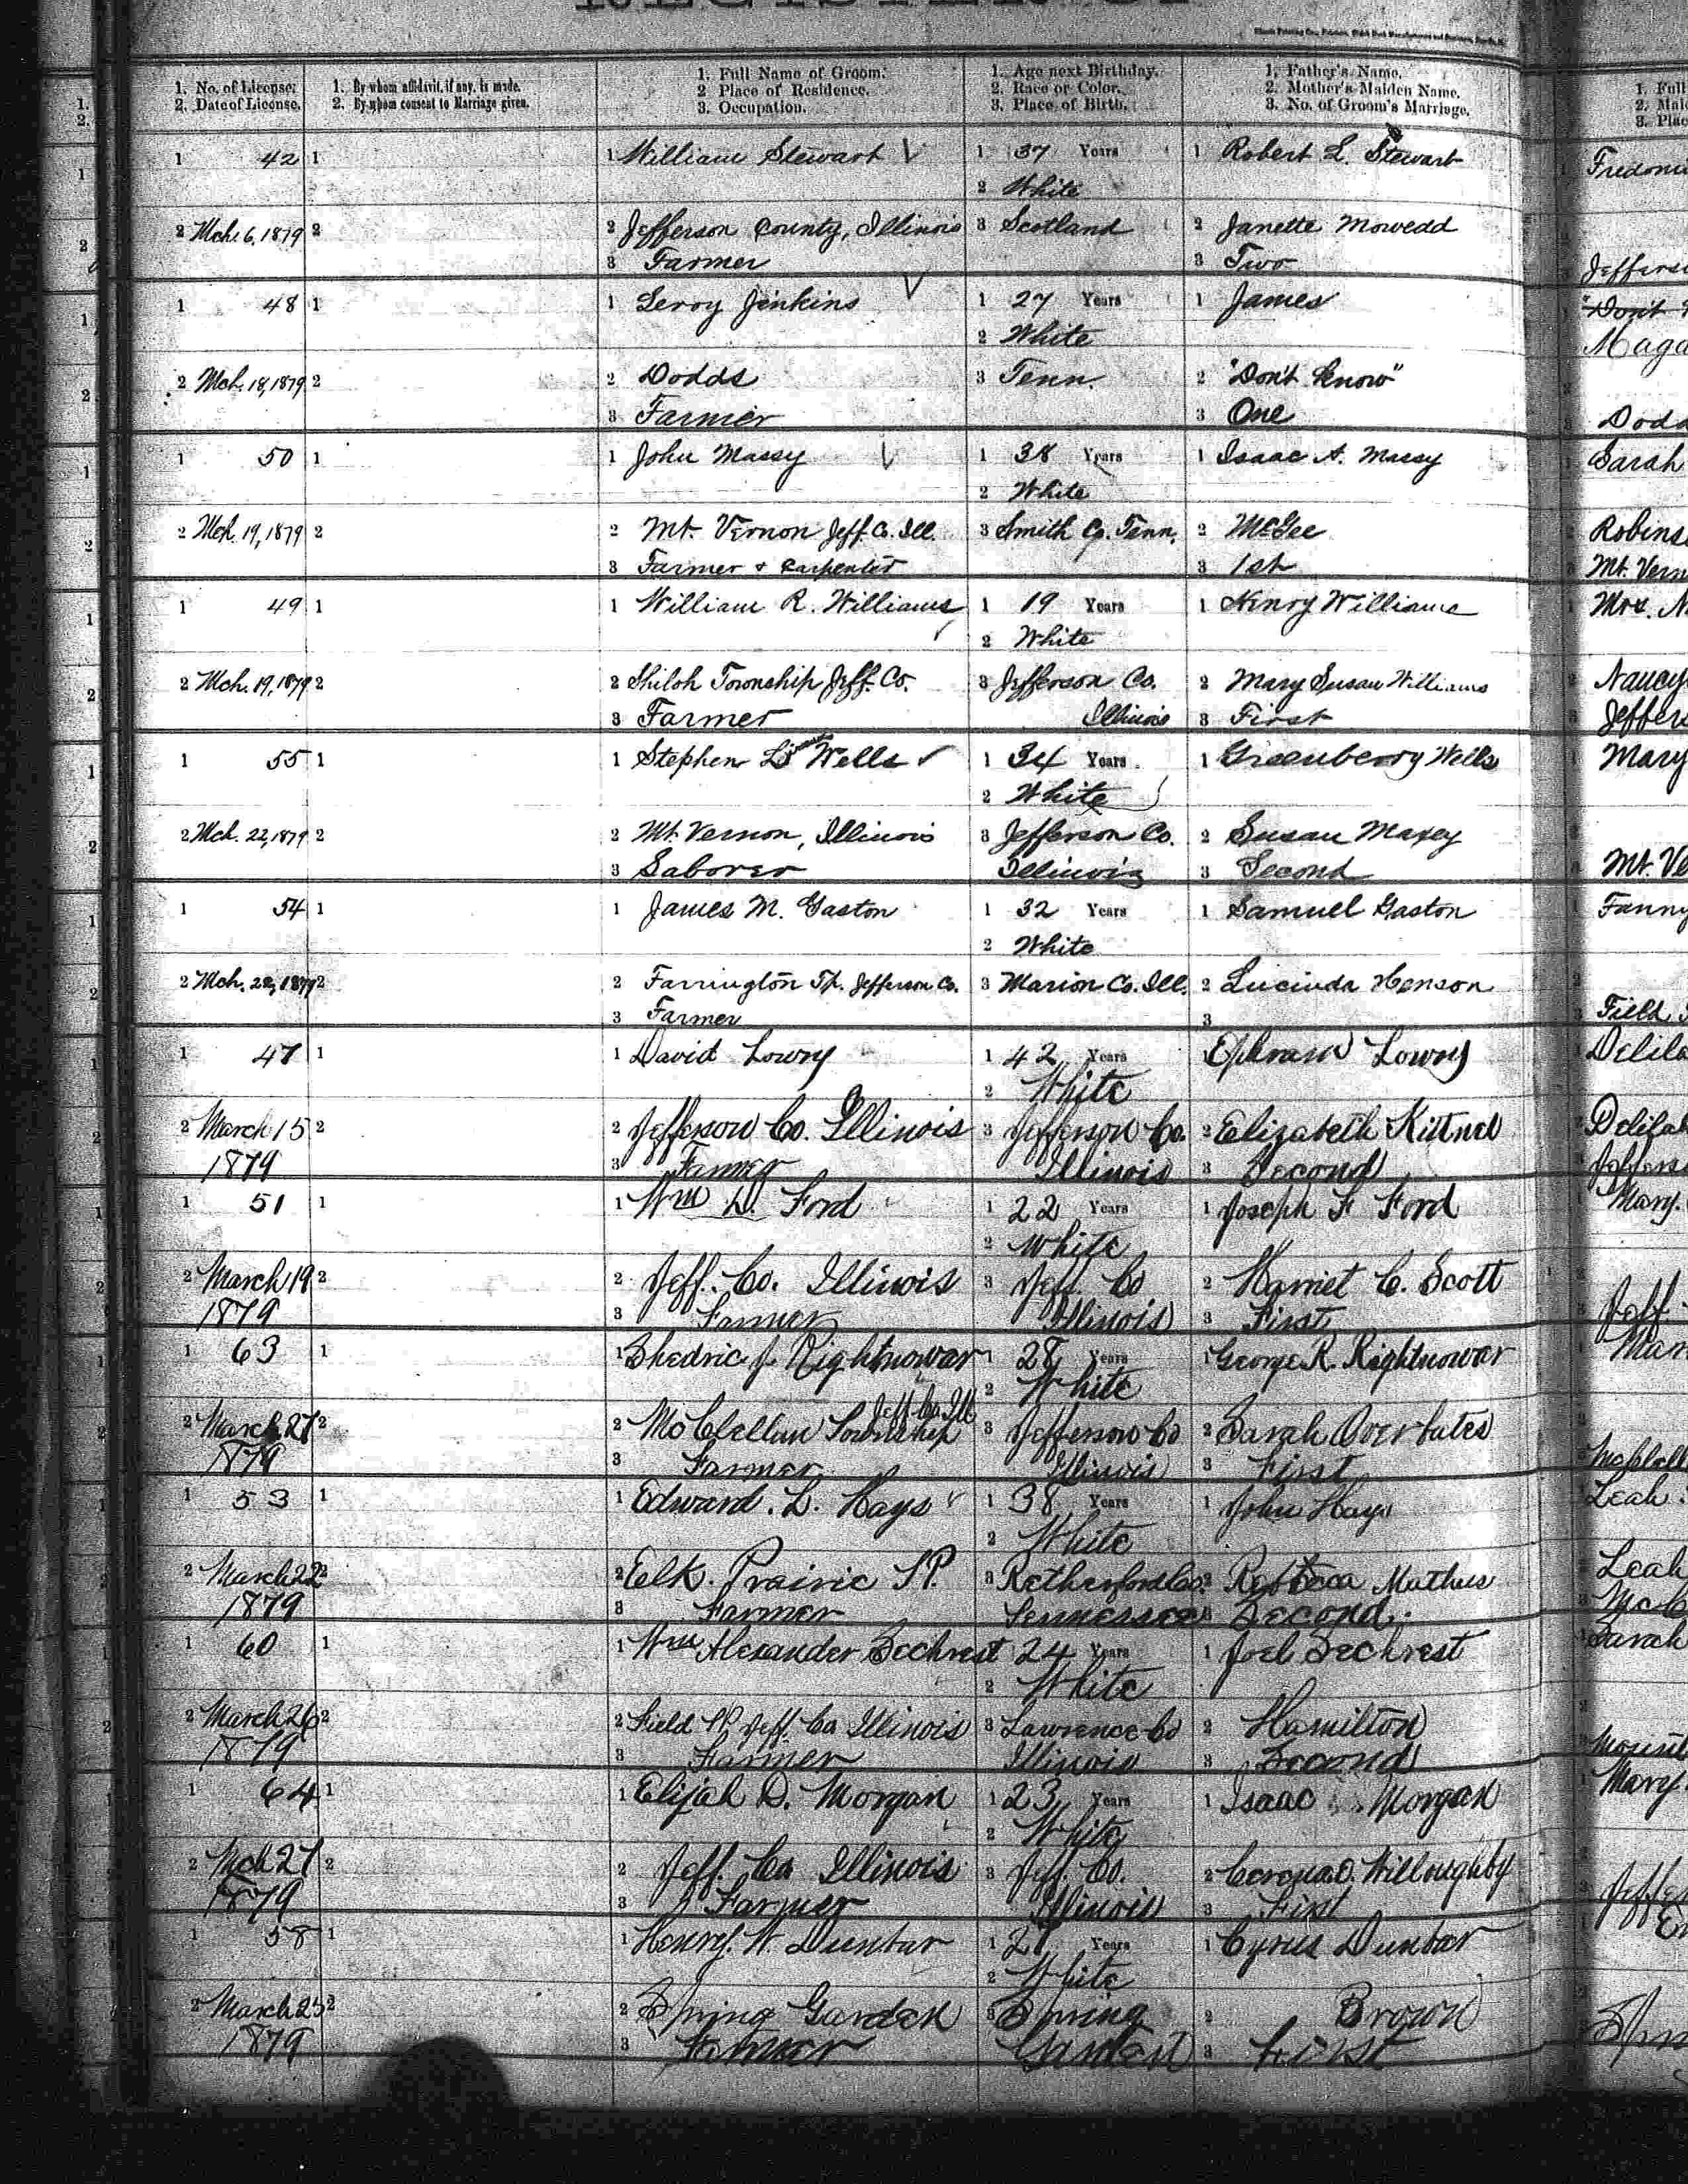 REGISTER OF
1. No. of License. 1. By whom affidavit, if any, is made. 1. Full Name of Groom. 1. Age next Birthday. 1. Father's Name. 1. Full
2. Date of License. 2. By whom consent to Marriage given. 2 Place of Residence. 2. Race or Color. 2. Mother's Maiden Name.
3. Occupation. 3. Place of Birth. 3. No. of Groom's Marriage. 3. Plac
1 42 1 1 William Stewart 1 37 Years 1 Robert L. Stewart
2 White
2 Mch. 6, 1879 2 2 Jefferson County, Illinois 3 Scotland 2 Janette Mowedd
3 Farmer 3 Two
1 48 1 1 Leroy Jenkins 1 27 Years 1 James "Don't
2 White Maga
2 Mch. 18, 1879 2 2 Dodds 3 Tenn. 2 "Don't know"
3 Farmer 3 One Dodd
1 50 1 1 John Massy 1 38 Years 1 Isaac A. Massy Sarah
2 White
2 Mch. 19, 1879 2 2 Mt. Vernon Jeff. Co. Ill. 3 Smith Co. Tenn. 2 McGee Robins
3 Farmer + Carpenter 3 1st Mt. Vern
1 49 1 1 William R. Williams 1 19 Years 1 Henry Williams Mrs. N
2 White
2 Mch. 19, 1879 2 2 Shiloh Township Jeff. Co. 3 Jefferson Co. 2 Mary Susan Williams Nancy
3 Farmer Illinois 3 First Jeffers
1 55 1 1 Stephen Wells 1 34 Years 1 Greenberry Wells Mary
2 White
2 Mch. 22, 1879 2 2 Mt. Vernon, Illinois 3 Jefferson Co. 2 Susan Maxey
3 Laborer Illinois 3 Second Mt. Ve
1 54 1 1 James M. Gaston 1 32 Years 1 Samuel Gaston Fanny
2 White
2 Mch. 22, 1879 2 2 Farrington Tp. Jefferson Co. 3 Marion Co. Ill. 2 Lucinda Henson
3 Farmer 3 Field
1 47 1 1 David Lowry 1 42 Years 1 Ephraim Lowry Delila
2 White
2 March 15 2 2 Jefferson Co. Illinois 3 Jefferson Co. 2 Elizabeth Kittrel Delila
1879 3 Farmer Illinois 3 Second Jeffers
1 51 1 1 Wm D. Ford 1 22 Years 1 Joseph F Ford Mary
2 White
2 March 19 2 2 Jeff. Co. Illinois 3 Jeff. Co 2 Harriet C. Scott
1879 3 Farmer Illinois 3 First Jeff.
1 63 1 1 Shedric J. Rightnowar 1 28 Years 1 George R. Rightnowar
2 White
Jeff. Co. Ill
2 March 27 2 2 McClellan Township 3 Jefferson Co 2 Sarah Overbates
1879 3 Farmer Illinois 3 First
1 53 1 1 Edward. L. Hays 1 38 Years 1 John Hays Leah
2 White
2 March 22 2 2 Elk. Prairie TP. 3 Retherford Co. 2 Rebecca Mathus Leah
1879 3 Farmer Tennessee 3 Second.
1 60 1 1 Wm Alexander Sechrest 1 24 Years 1 Joel Sechrest Sarah
2 White
2 March 26 2 2 Field TP. Jeff. Co Illinois 3 Lawrence Co 2 Hamilton
1879 3 Farmer Illinois 3 Second
1 64 1 1 Elijah D. Morgan 1 23 Years 1 Isaac Morgan Mary
2 White
2 Mch 27 2 2 Jeff. Co Illinois 3 Jeff. Co. 2 Willoughby
1879 3 Farmer Illinois 3 First
1 58 1 1 Henry. W. Dunbar 1 Years 1 Cyrus Dunbar
2 White
2 March 25 2 2 Spring Garden 3 Spring 2 Brown
1879 3 Farmer Garden 3 First